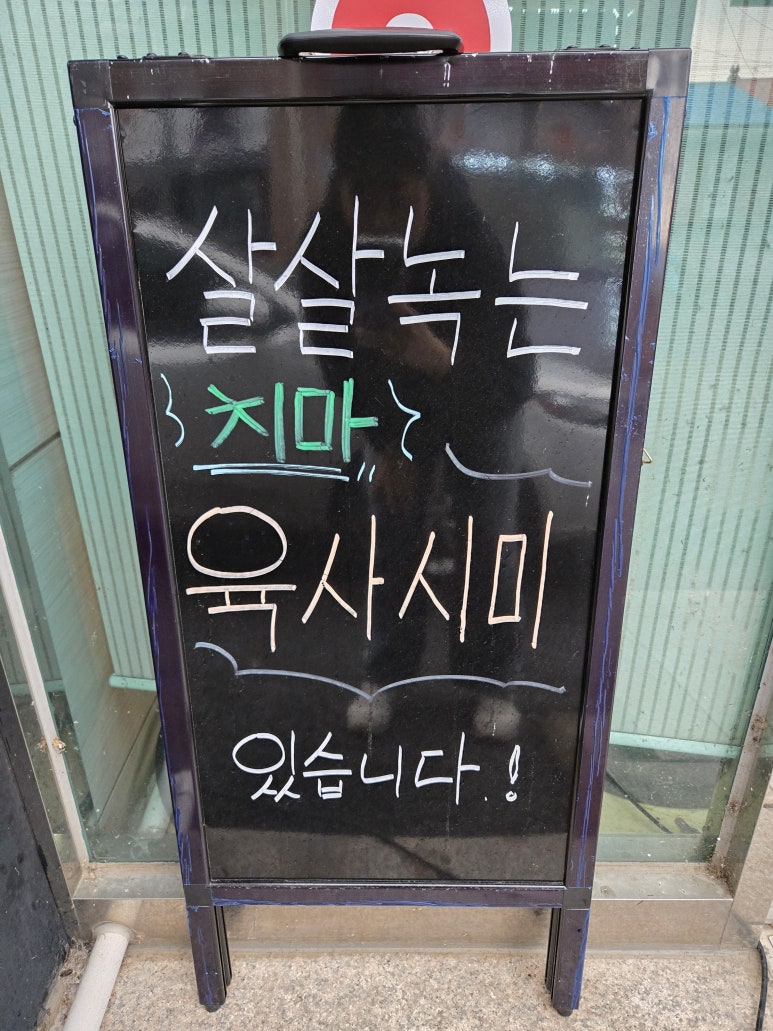 살살녹는
치마
육사시미
있습니다.!